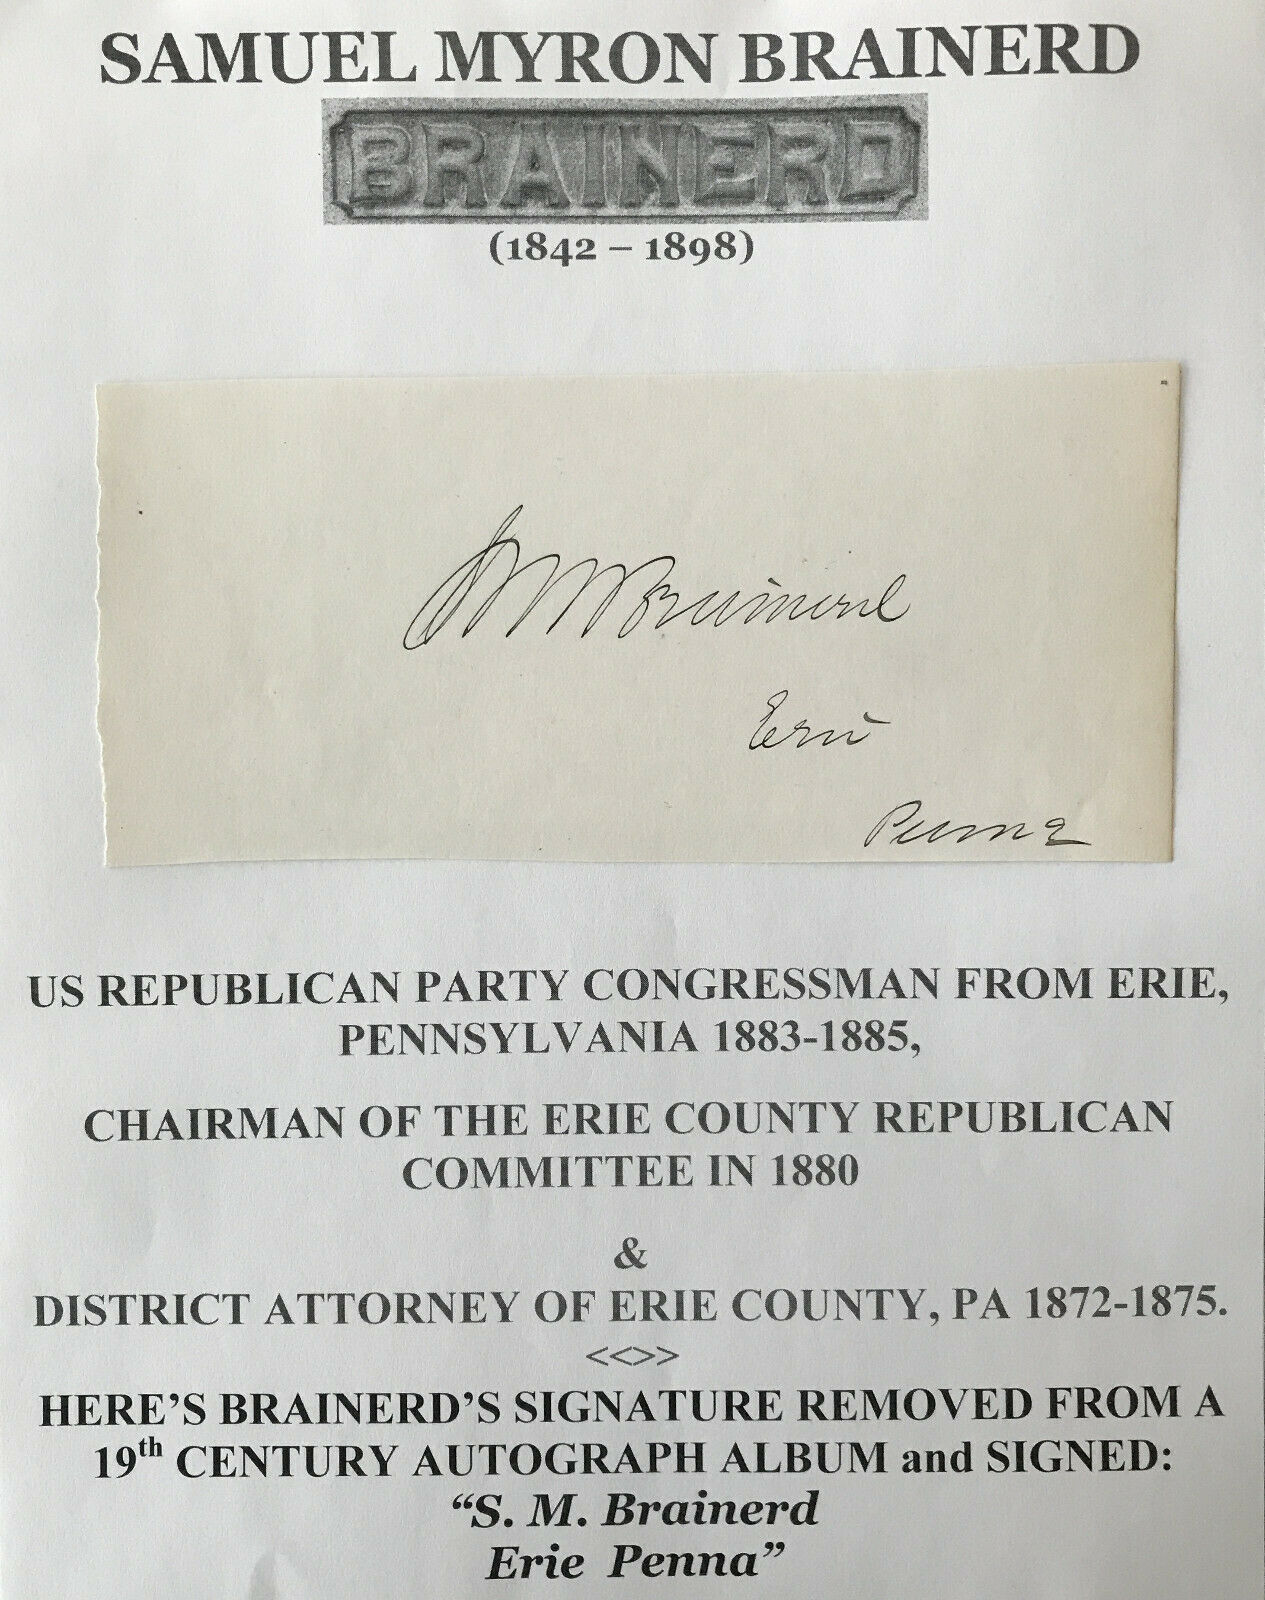 SAMUEL MYRON BRAINERD
BRAINERD
(1842 – 1898)
S M Brainerd
Erie
Penna
US REPUBLICAN PARTY CONGRESSMAN FROM ERIE,
PENNSYLVANIA 1883-1885,
CHAIRMAN OF THE ERIE COUNTY REPUBLICAN
COMMITTEE IN 1880
&
DISTRICT ATTORNEY OF ERIE COUNTY, PA 1872-1875.
<<>>
HERE’S BRAINERD’S SIGNATURE REMOVED FROM A
19th CENTURY AUTOGRAPH ALBUM and SIGNED:
“S. M. Brainerd
Erie Penna”